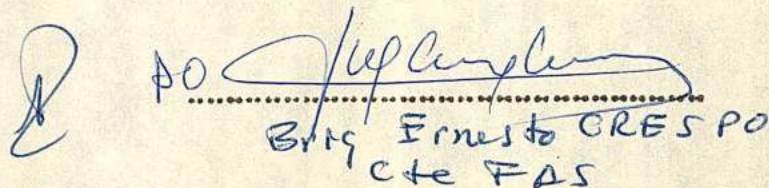 PO
Brig Ernesto CRESPO
Cte FAS